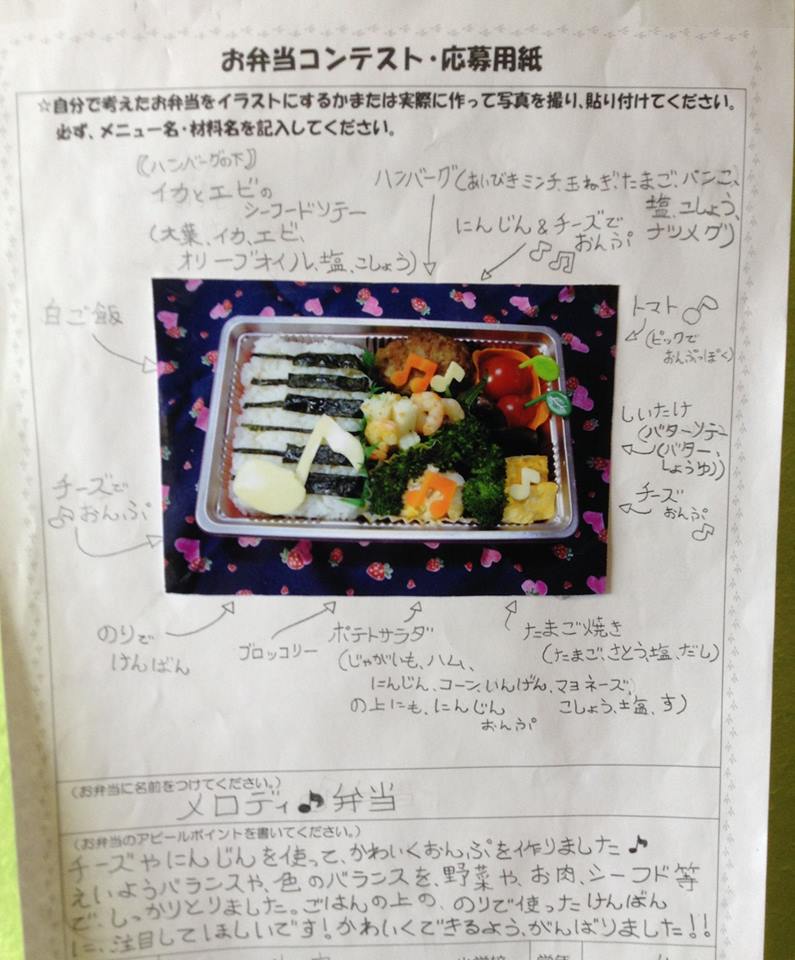 お弁当コンテスト・応募用紙
☆自分で考えたお弁当をイラストにするかまたは実際に作って写真を撮り、貼り付けてください。
必ず、メニュー名・材料名を記入してください。
《ハンバーグの下》
イカとエビの
シーフードソテー
(大葉、イカ、エビ、
オリーブオイル、塩、こしょう)
ハンバーグ(あいびきミンチ、玉ねぎ、たまご、パンこ、
塩、こしょう、
ナツメグ)
にんじん&チーズで
おんぷ
白ご飯
トマト
(ピックで
おんぷっぽく)
しいたけ
(バターソテー
(バター、
しょうゆ))
チーズで
♫おんぷ
チーズ
おんぷ
のりで
けんばん
ブロッコリー
ポテトサラダ
(じゃがいも、ハム、
にんじん、コーン、いんげん、マヨネーズ、
こしょう、塩、す)
の上にも、にんじん
おんぷ
たまご焼き
(たまご、さとう、塩、だし)
(お弁当に名前をつけてください。)
メロディ♪弁当
(お弁当のアピールポイントを書いてください。)
チーズやにんじんを使って、かわいくおんぷを作りました♪
えいようバランスや、色のバランスを、野菜や、お肉、シーフド等
で、しっかりとりました。ごはんの上の、のりで使ったけんばん
に、注目してほしいです!かわいくできるよう、がんばりました!!